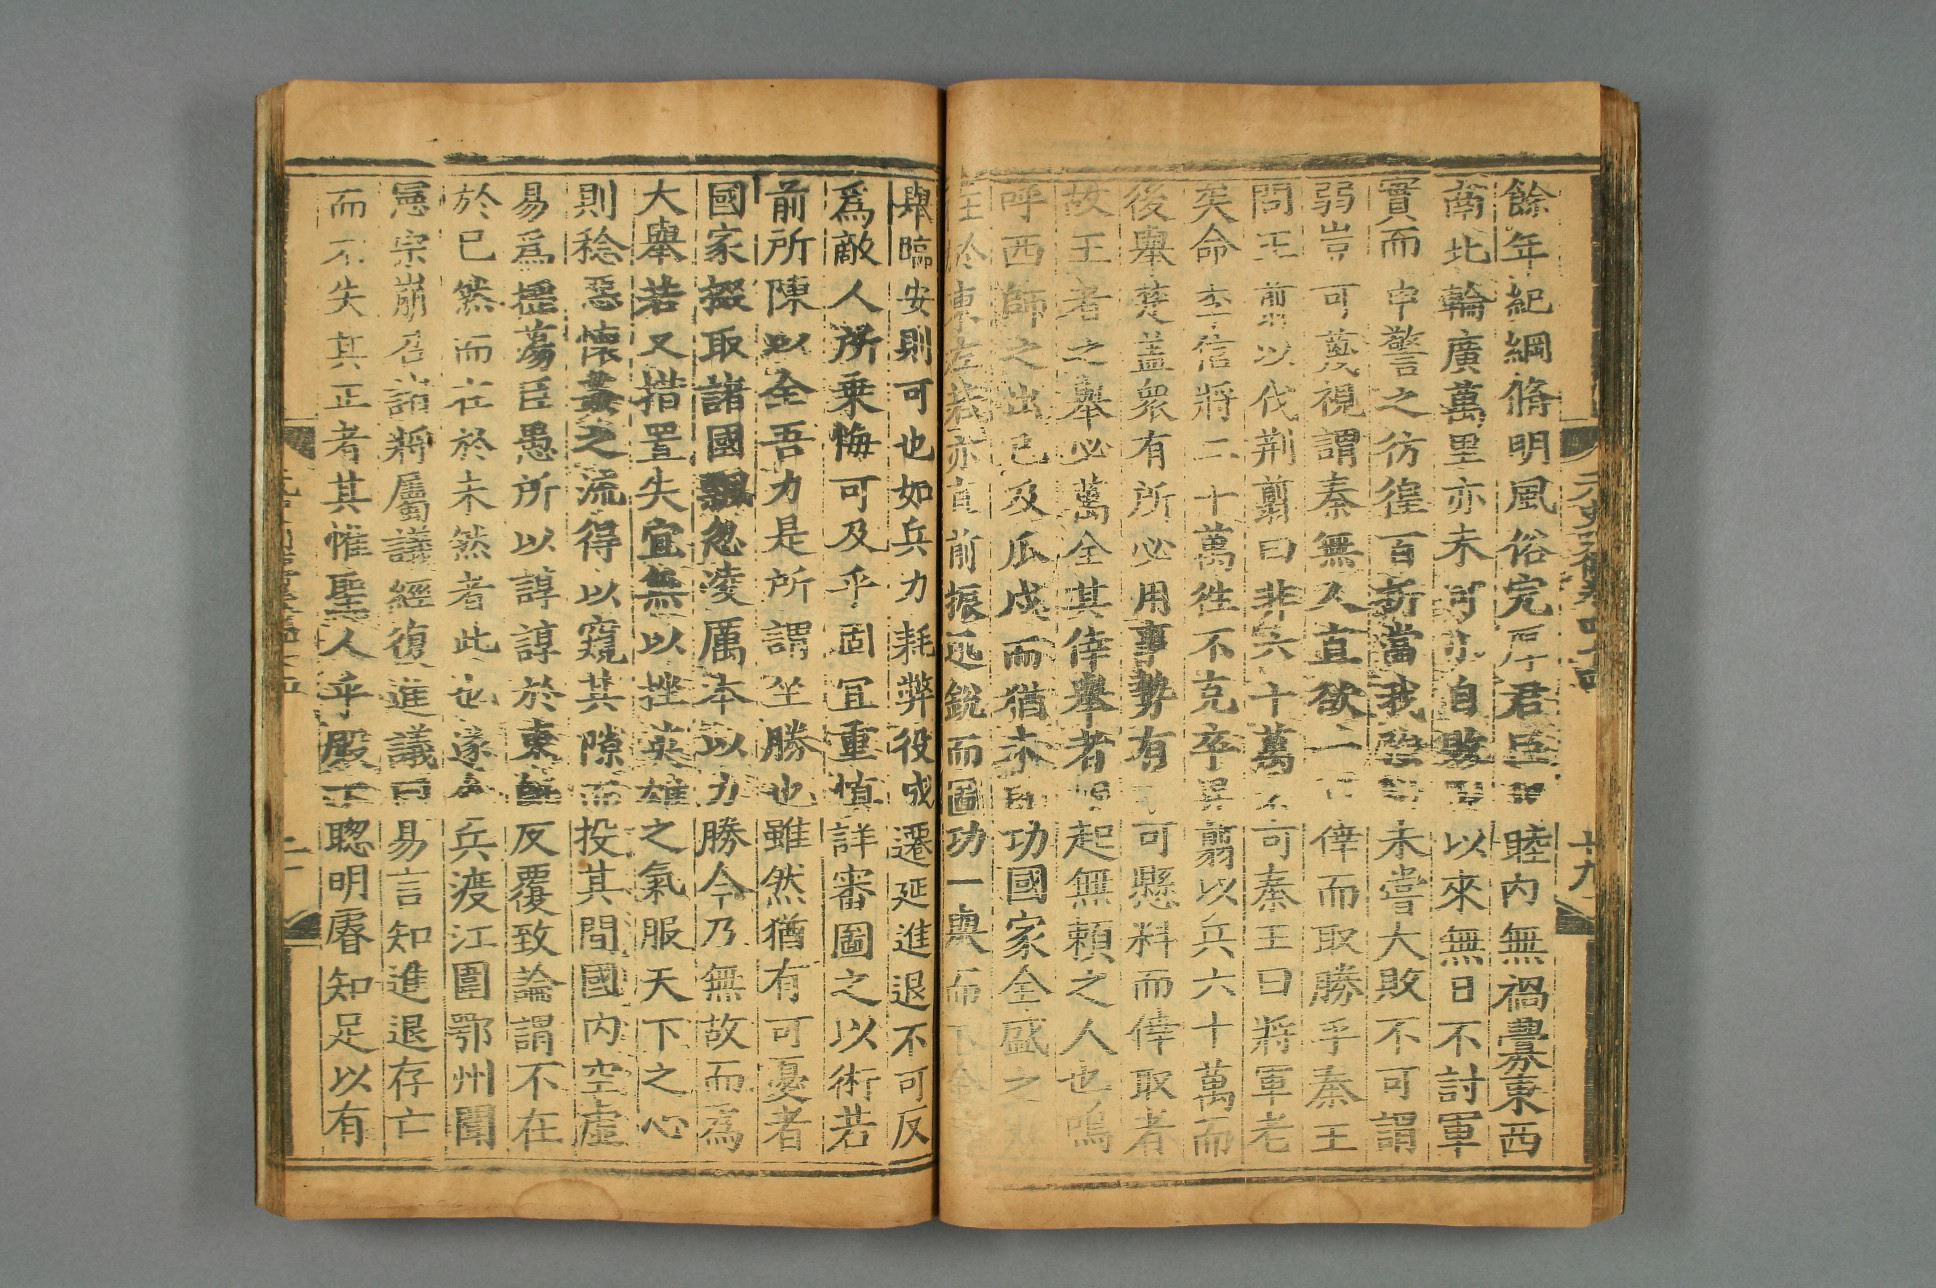 餘年紀綱脩明風俗完厚君臣輯睦内無禍釁東西
南北輪廣萬里亦未可小自敗盟以來無日不討軍
實而申警之彷徨百折當我強對未嘗大敗不可謂
弱豈可蔑視謂秦無人直欲一軍倖而取勝乎秦王
問王翦以伐荆翦曰非六十萬不可秦王曰將軍老
矣命李信將二十萬往不克卒畀翦以兵六十萬而
後舉楚蓋衆有所必用事勢有不可懸料而倖取者
故王者之舉必萬全其倖舉者崛起無賴之人也嗚
呼西師之出已及瓜戍而猶未即功國家全盛之力
在於東左若亦直前振迅銳而圖功一舉而下金陵
舉臨安則可也如兵力耗弊役成遷延進退不可反
爲敵人所乗悔可及乎固宜重慎詳審圖之以術若
前所陳以全吾力是所謂坐勝也雖然猶有可憂者
國家掇取諸國飄忽凌厲本以力勝今乃無故而為
大舉若又措置失宜無以挫英雄之氣服天下之心
則稔惡懷姦之流得以窺其隙而投其間國内空虛
易爲搖蕩臣愚所以諄諄於東師反覆致論謂不在
於已然而在於未然者此也遂會兵渡江圍鄂州聞
憲宗崩召諸將屬議經復進議曰易言知進退存亡
而不失其正者其惟聖人乎殿下聰明睿知足以有